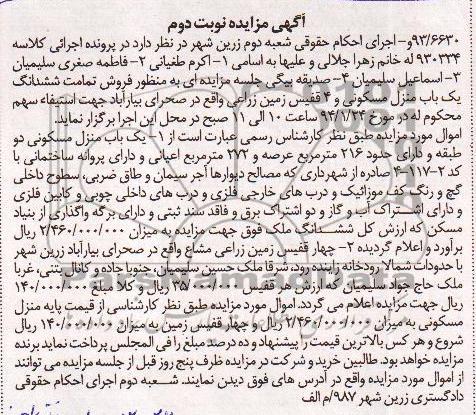 آگهی مزایده نوبت دوم
۹۳/۶۶۳۰و- اجرای احکام حقوقی شعبه دوم زرین شهر در نظر دارد در پرونده اجرائی کلاسه
۹۳۰۳۳۴ له خانم زهرا جلالی و علیها به اسامی ۱- اکرم طغیانی ۲- فاطمه صغری سلیمیان
۳- اسماعیل سلیمیان ۴- صدیقه بیگی جلسه مزایده ای به منظور فروش تمامت ششدانگ
یک باب منزل مسکونی و ۴ قفیس زمین زراعی واقع در صحرای بیارآباد جهت استیفاء سهم
محکوم له در مورخ ۹۴/۱/۲۴ ساعت ۱۰ الی ۱۱ صبح در محل این اجرا برگزار نماید.
اموال مورد مزایده طبق نظر کارشناس رسمی عبارت است از ۱- یک باب منزل مسکونی دو
طبقه و دارای حدود ۲۱۶ مترمربع عرصه و ۲۷۲ مترمربع اعیانی و دارای پروانه ساختمانی با
کد ۲-۱۱۷-۴ صادره از شهرداری که مصالح دیوارها آجر سیمان و طاق ضربی، سطوح داخلی
گچ و رنگ کف موزائیک و درب های خارجی فلزی و درب های داخلی چوبی و کابین فلزی
و دارای اشتراک آب و گاز و دو اشتراک برق و فاقد سند ثبتی و دارای برگه واگذاری از بنیاد
مسکن که ارزش کل ششدانگ ملک فوق جهت مزایده به میزان ۲/۴۶۰/۰۰۰/۰۰۰ ریال
برآورد و اعلام گردیده ۲- چهار قفیس زمین زراعی مشاع واقع در صحرای بیارآباد زرین شهر
با حدودات شمالا رودخانه زاینده رود، شرقا ملک حسین سلیمیان، جنوبا جاده و کانال بتنی، غربا
ملک حاج جواد سلیمیان که ارزش هر قفیس ۳۵/۰۰۰/۰۰۰ ریال و کلا به میزان ۱۴۰/۰۰۰/۰۰۰
ریال جهت مزایده اعلام می گردد. اموال مورد مزایده طبق نظر کارشناسی از قیمت پایه منزل
مسکونی به میزان ۲/۴۶۰/۰۰۰/۰۰۰ ریال و چهار قفیس زمین به میزان ۱۴۰/۰۰۰/۰۰۰ ریال
شروع و هر کس بالاترین قیمت را پیشنهاد و ده درصد مبلغ را فی المجلس پرداخت نماید برنده
مزایده خواهد بود. طالبین خرید و شرکت در مزایده ظرف پنج روز قبل از جلسه مزایده می توانند
از اموال مورد مزایده واقع در آدرس های فوق دیدن نمایند. شعبه دوم اجرای احکام حقوقی
دادگستری زرین شهر ۹۸۷/م الف